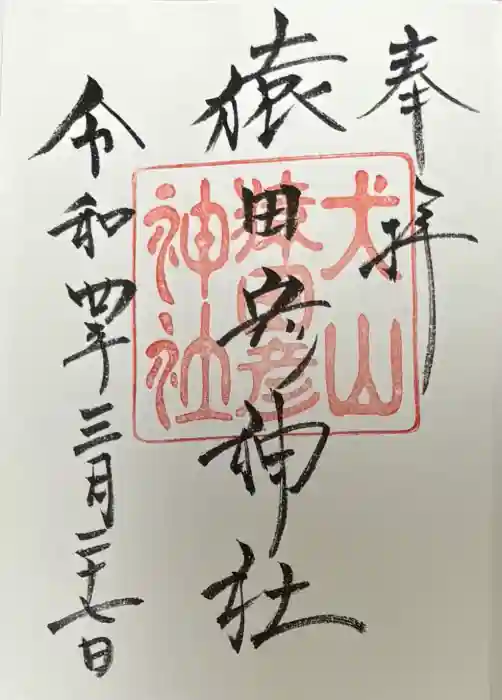 奉拝
犬山
猿田彦
神社
猿田彦神社
令和四年三月二十七日